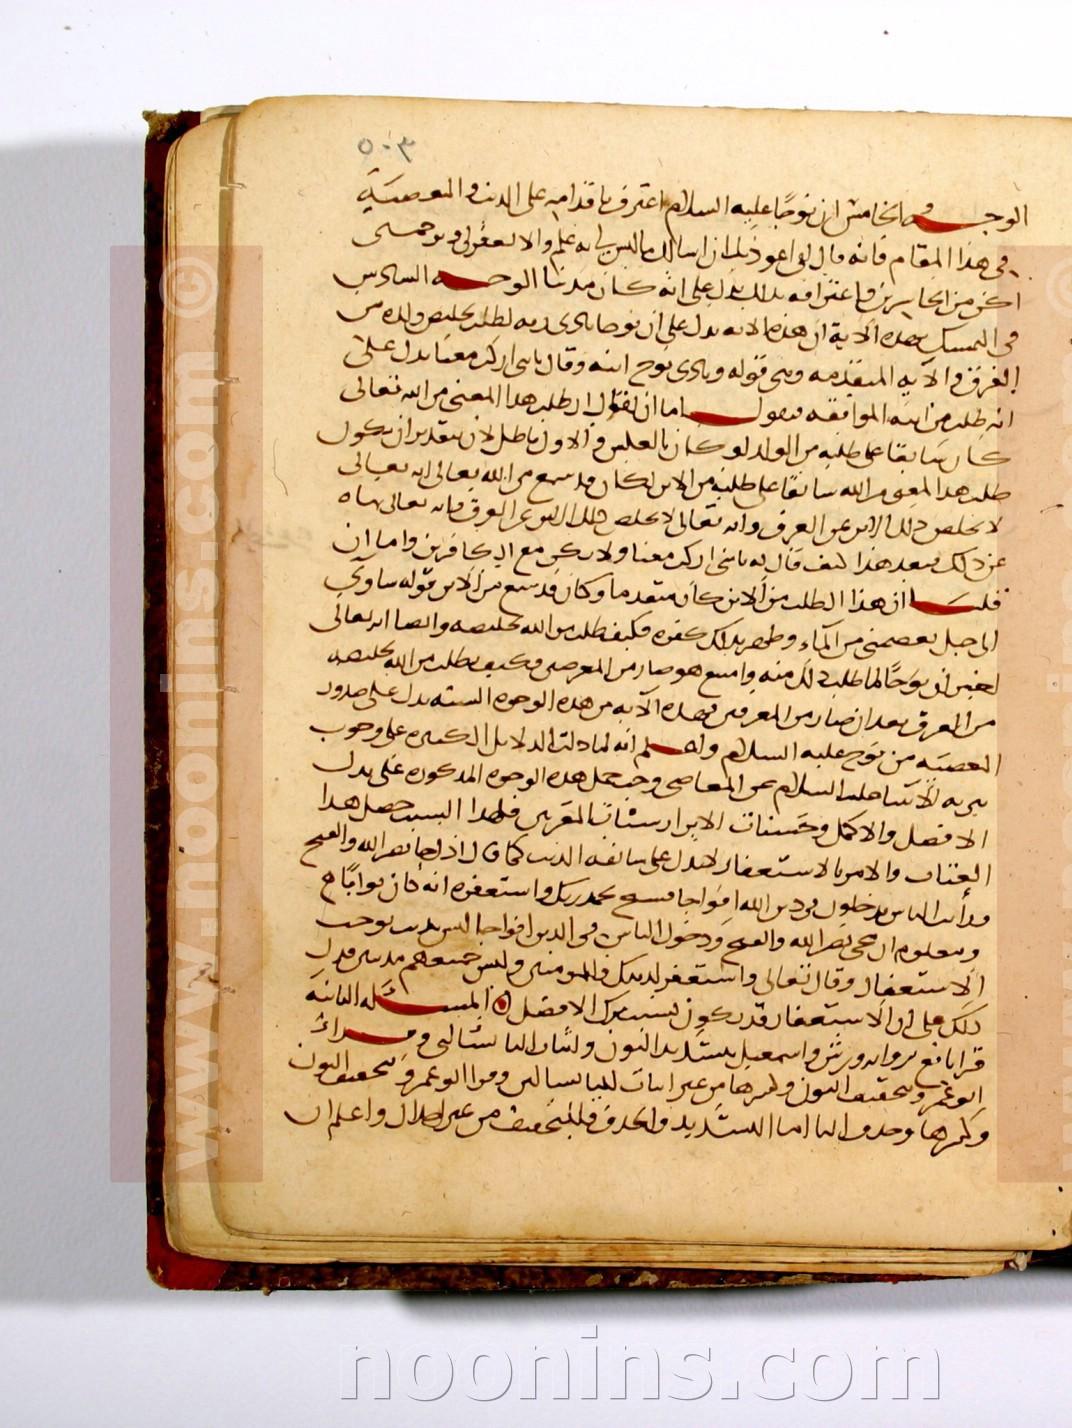 ٥٠٣
الوجه الخامس ان نوحًا عليه السلام اعترف باقدامه على الذنب والمعصية
في هذا المقام فانه قال اني اعوذ بك ان اسالك ما ليس لي به علم والا تغفر لي وترحمني
اكن من الخاسرين واعترافه بذلك يدل على انه كان مذنبا الوجه السادس
في التمسك بهذه الاية ان هذه الاية تدل على ان نوحا نادى ربه لطلب تخليص ولده من
الغرق والاية المتقدمة وهي قوله ونادى نوح ابنه وقال يا بني اركب معنا تدل على
انه طلب من ابنه الموافقة فنقول اما ان يقال ان طلب هذا المعنى من الله تعالى
كان سابقا على طلبه من الولد او كان بالعكس والاول باطل لان بتقدير ان يكون
طلب هذا المعنى من الله سابقا على طلبه من الابن لكان قد سمع من الله تعالى انه تعالى
لا يخلص ذلك الابن عن الغرق وانه تعالى نهاه
عن ذلك وبعد هذا كيف قال له يا بني اركب معنا ولا تكن مع الكافرين واما ان
قلنا ان هذا الطلب من الابن كان متقدما وكان قد سمع من الابن قوله ساوي
الى جبل يعصمني من الماء وظهر بذلك كفره فكيف طلب من الله تخليصه وايضا انه تعالى
اخبر ان نوحًا لما طلب ذلك منه وامتنع هو صار من المغرقين فكيف يطلب من الله تخليصه
من الغرق بعد ان صار من المغرقين فهذه الآية من هذه الوجوه الستة تدل على صدور
المعصية من نوح عليه السلام واعلم انه لما دلت الدلائل الكثيرة على وجوب
تنزيه الانبيا عليهم السلام عن المعاصي وجب حمل هذه الوجوه المذكورة على ترك
الافضل والاكمل وحسنات الابرار سيئات المقربين فلهذا السبب حصل هذا
العتاب والامر بالاستغفار لا يدل على سابقة الذنب كما قال اذا جا نصر الله والفتح
ورأيت الناس يدخلون في دين الله افواجا فسبح بحمد ربك واستغفره انه كان توابًا
ومعلوم ان مجي نصر الله والفتح ودخول الناس في الدين افواجا ليس بذنب يوجب
الاستغفار وقال تعالى واستغفر لذنبك وللمومنين وليس جميعهم مذنبين فدل
ذلك على ان الاستغفار قد يكون بسبب ترك الافضل المسئلة الثانية
قرا نافع برواية ورش واسمعيل بتشديد النون واثبات اليا تسألني وقراءة
ابو عمرو بتخفيف النون وكسرها من غير اثبات اليا
وكسرها وحذف اليا اما التشديد والحذف فللتخفيف من غير اخلال واعلم ان
www.noonins.com
©
noonins.com